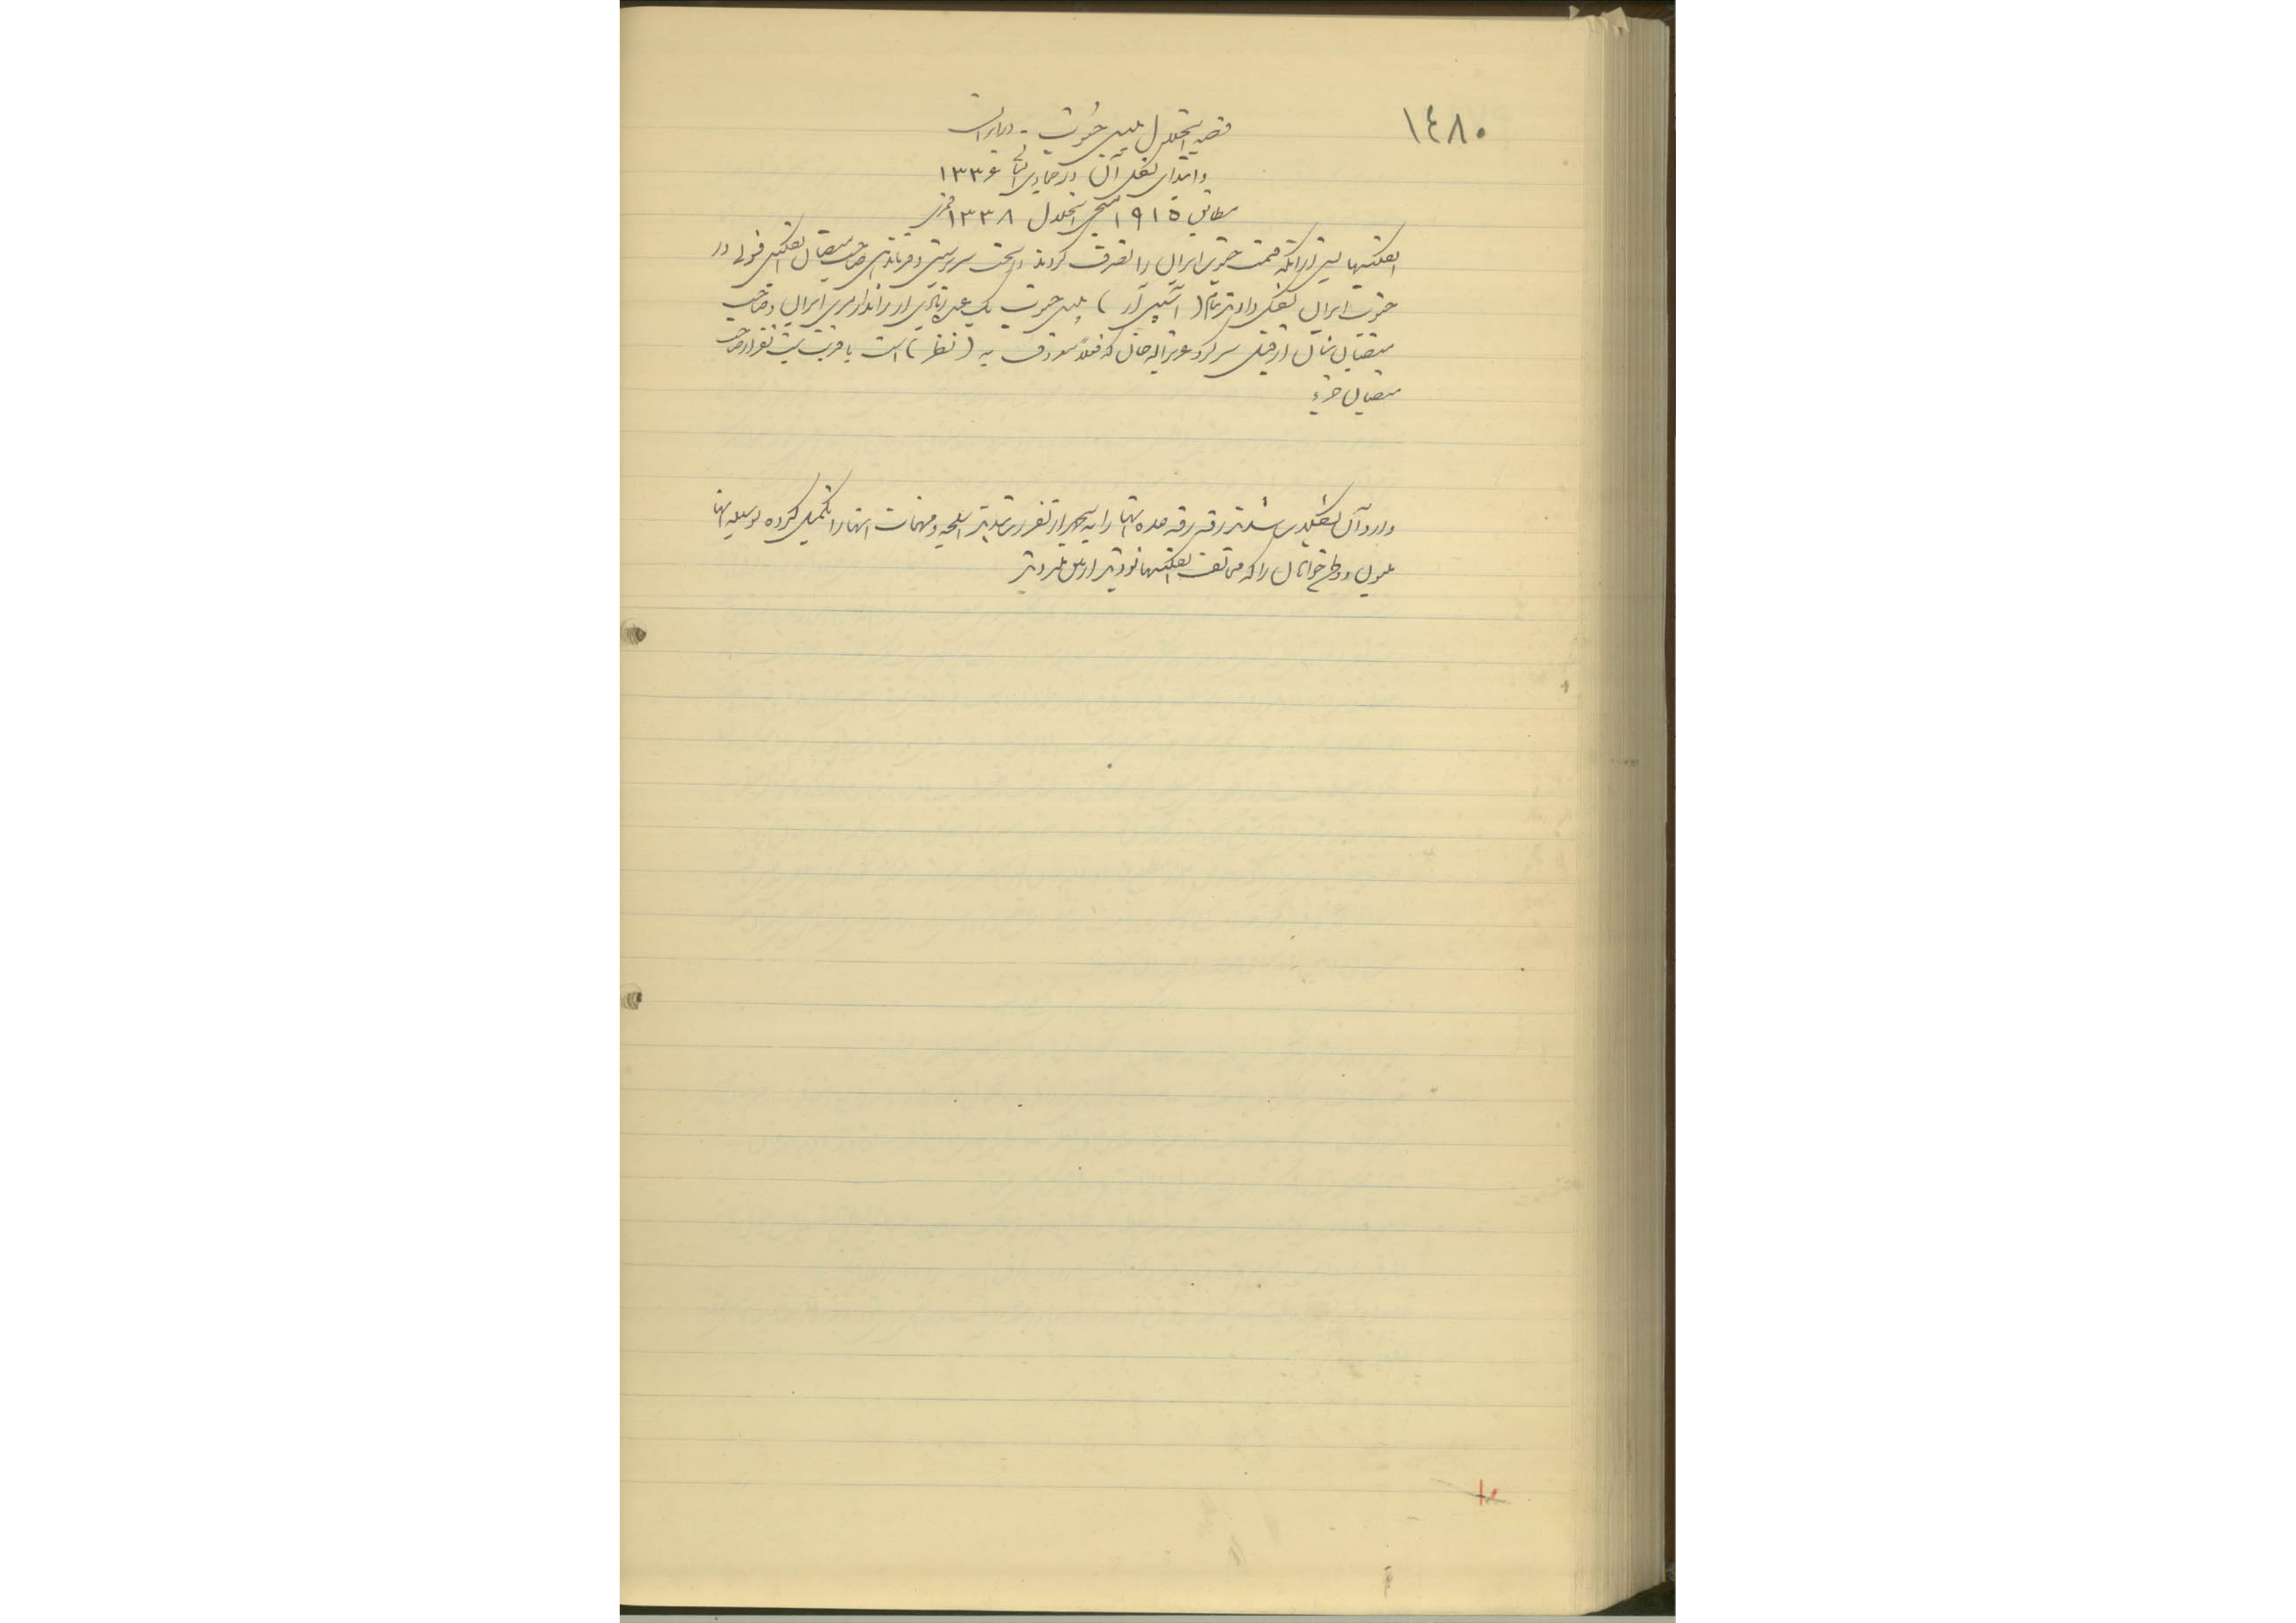 ١٤٨٠
قضیه انحلال پلیس جنوب - در ایران
و ابتدای تشکیل آن در جمادی الثانی ١٣٣٤
مطابق ١٩١٥ مسیحی انحلال ١٣٣٨ قمری
انگلیسها پس از آنکه قسمت جنوب ایران را تصرف کردند و تحت سرپرستی و فرماندهی صاحب منصبان انگلیسی قوائی در
جنوب ایران تشکیل دادند بنام ( اس پی آر ) پلیس جنوب یک عده زیادی از ژاندارمری ایران و صاحب
منصبان از قبیل سرگرد عزیزاله خان که فعلاً معروف به ( ) است با قریب بیست نفر از صاحب
منصبان جزء
وارد آن تشکیلات شدند رفته رفته عده آنها را به هزار نفر رسانیدند اسلحه و مهمات آنها را تکمیل کرده بوسیله آنها
را که مخالف انگلیسها بودند از بین میبردند